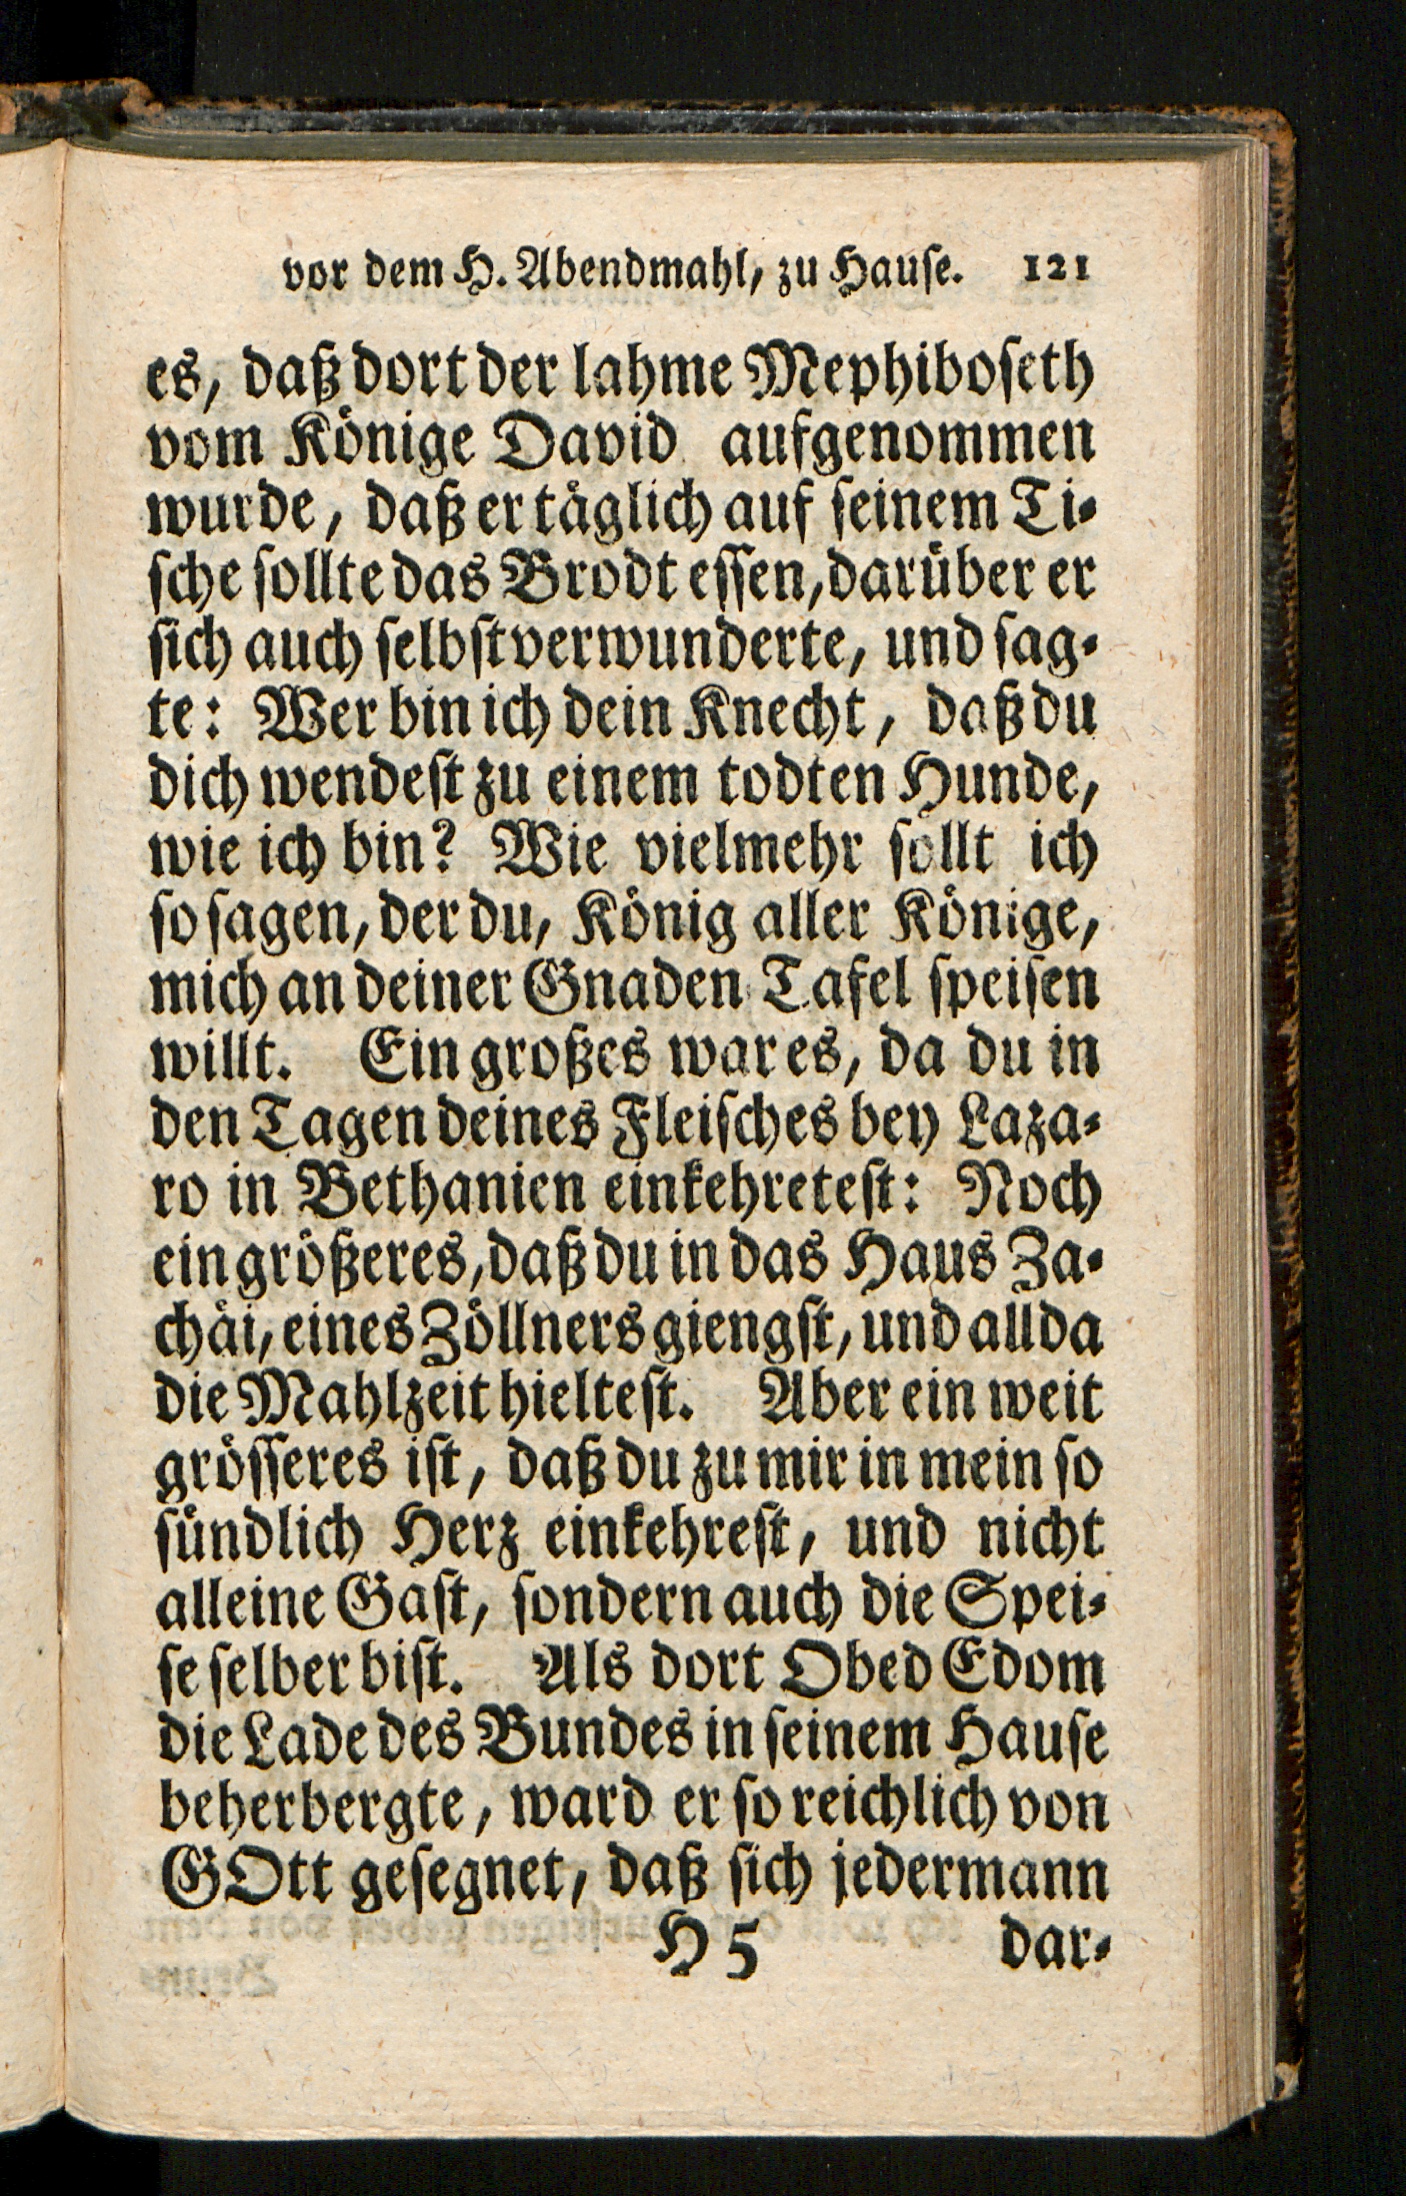 vor dem H. Abendmahl, zu Hause. 121
es, daß dort der lahme Mephiboseth
vom Könige David aufgenommen
wurde, daß er täglich auf seinem Ti-
sche sollte das Brodt essen, darüber er
sich auch selbst verwunderte, und sag-
te: Wer bin ich dein Knecht, daß du
dich wendest zu einem todten Hunde,
wie ich bin? Wie vielmehr sollt ich
so sagen, der du, König aller Könige,
mich an deiner Gnaden Tafel speisen
willt. Ein großes war es, da du in
den Tagen deines Fleisches bey Laza-
ro in Bethanien einkehretest: Noch
ein größeres, daß du in das Haus Za-
chäi, eines Zöllners giengst, und allda
die Mahlzeit hieltest. Aber ein weit
grösseres ist, daß du zu mir in mein so
sündlich Herz einkehrest, und nicht
alleine Gast, sondern auch die Spei-
se selber bist. Als dort Obed Edom
die Lade des Bundes in seinem Hause
beherbergte, ward er so reichlich von
GOtt gesegnet, daß sich jedermann
H 5 dar-